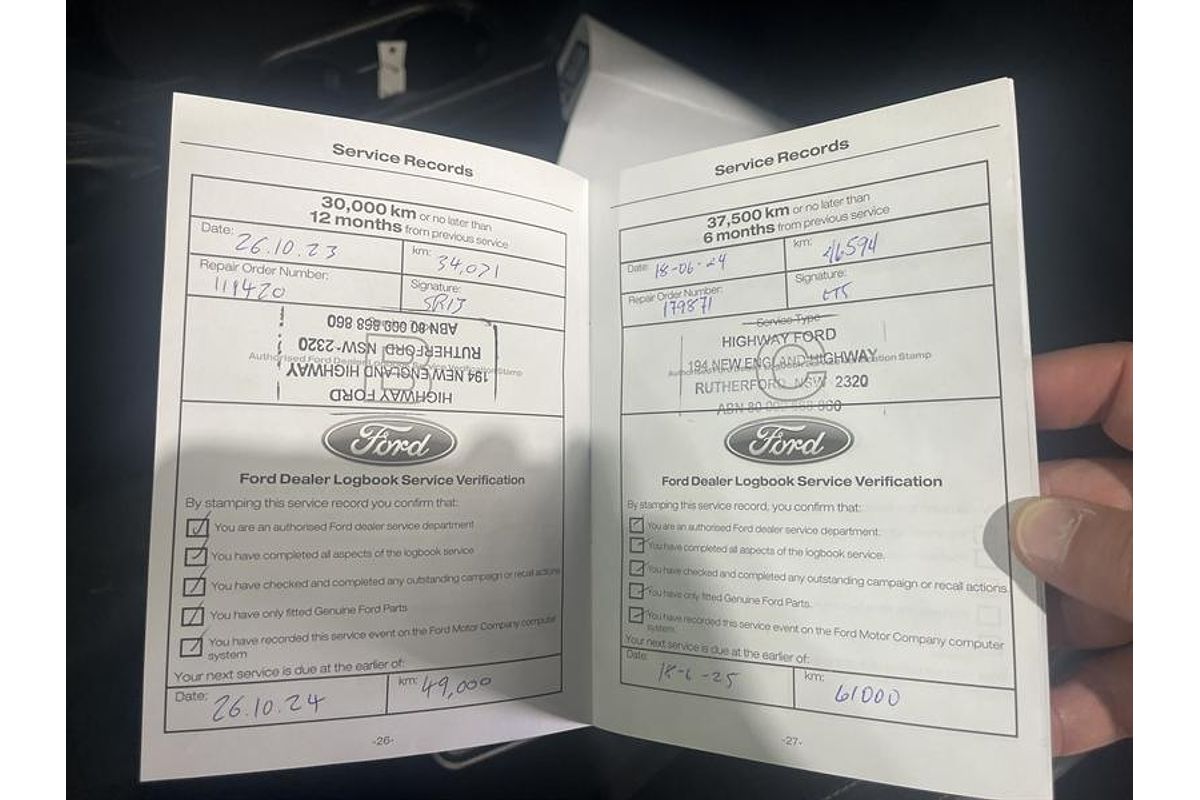 Service Records
30,000 km or no later than
12 months from previous service
Date: 26.10.23 km: 34,071
Repair Order Number: 119420 Signature:
HIGHWAY FORD
194 NEW ENGLAND HIGHWAY
Authorised Ford Dealer Logbook Service Verification Stamp
RUTHERFORD NSW 2320
ABN 80 000 868 860
B
Ford
Ford Dealer Logbook Service Verification
By stamping this service record you confirm that:
You are an authorised Ford dealer service department
You have completed all aspects of the logbook service
You have checked and completed any outstanding campaign or recall actions
You have only fitted Genuine Ford Parts
You have recorded this service event on the Ford Motor Company computer
system
Your next service is due at the earlier of:
Date: 26.10.24 km: 49,000
-26-
Service Records
37,500 km or no later than
6 months from previous service
Date: 18-06-24 km: 46594
Repair Order Number: 179871 Signature:
Service Type
C
HIGHWAY FORD
194 NEW ENGLAND HIGHWAY
RUTHERFORD NSW 2320
ABN 80
Ford
Ford Dealer Logbook Service Verification
By stamping this service record, you confirm that:
You are an authorised Ford dealer service department.
You have completed all aspects of the logbook service.
You have checked and completed any outstanding campaign or recall actions.
You have only fitted Genuine Ford Parts.
You have recorded this service event on the Ford Motor Company computer
system.
Your next service is due at the earlier of:
Date: 18-6-25 km: 61000
-27-